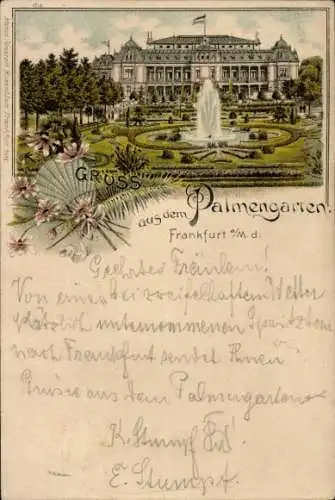 GRUSS
aus dem Palmengarten!
Frankfurt a/M. d.
Geehrtes Fräulein!
Von einer bei zweifelhaftem Wetter
kürzlich unternommenen Spritztour
nach Frankfurt sendet Ihnen
Grüsse aus dem Palmengarten
K. Stumpf
E. Stumpf.